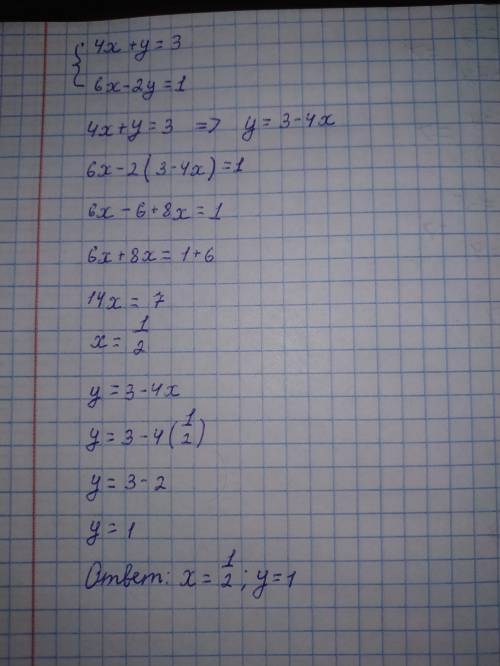 { 4x + y = 3
6x - 2y = 1
4x + y = 3 => y = 3 - 4x
6x - 2(3 - 4x) = 1
6x - 6 + 8x = 1
6x + 8x = 1 + 6
14x = 7
x = 1/2
y = 3 - 4x
y = 3 - 4(1/2)
y = 3 - 2
y = 1
Ответ: x = 1/2; y = 1